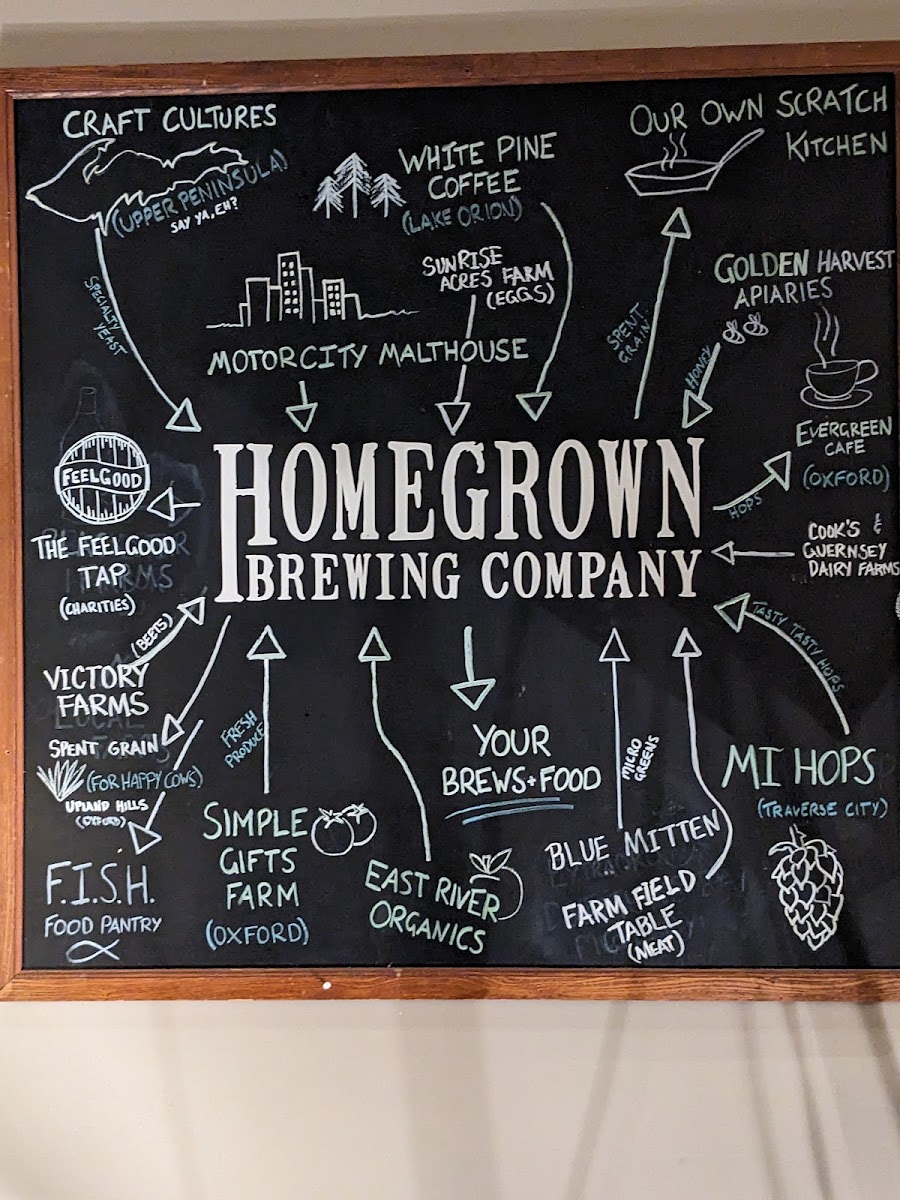 CRAFT CULTURES
(UPPER PENINSULA)
SAY YA, EH?
SPECIALTY
YEAST
WHITE PINE
COFFEE
(LAKE ORION)
OUR OWN SCRATCH
KITCHEN
SPENT
GRAIN
SUNRISE
ACRES FARM
(EGGS)
MOTORCITY MALTHOUSE
GOLDEN HARVEST
APIARIES
HONEY
EVERGREEN
CAFE
(OXFORD)
HOPS
FEELGOOD
THE FEELGOOD
TAP
(CHARITIES)
HOMEGROWN
BREWING COMPANY
COOK'S &
GUERNSEY
DAIRY FARMS
(BEETS)
VICTORY
FARMS
SPENT GRAIN
(FOR HAPPY COWS)
UPLAND HILLS
(OXFORD)
F.I.S.H.
FOOD PANTRY
FRESH
PRODUCE
SIMPLE
GIFTS
FARM
(OXFORD)
EAST RIVER
ORGANICS
YOUR
BREWS+FOOD
MICRO
GREENS
BLUE MITTEN
FARM FIELD
TABLE
(MEAT)
TASTY TASTY HOPS
MI HOPS
(TRAVERSE CITY)